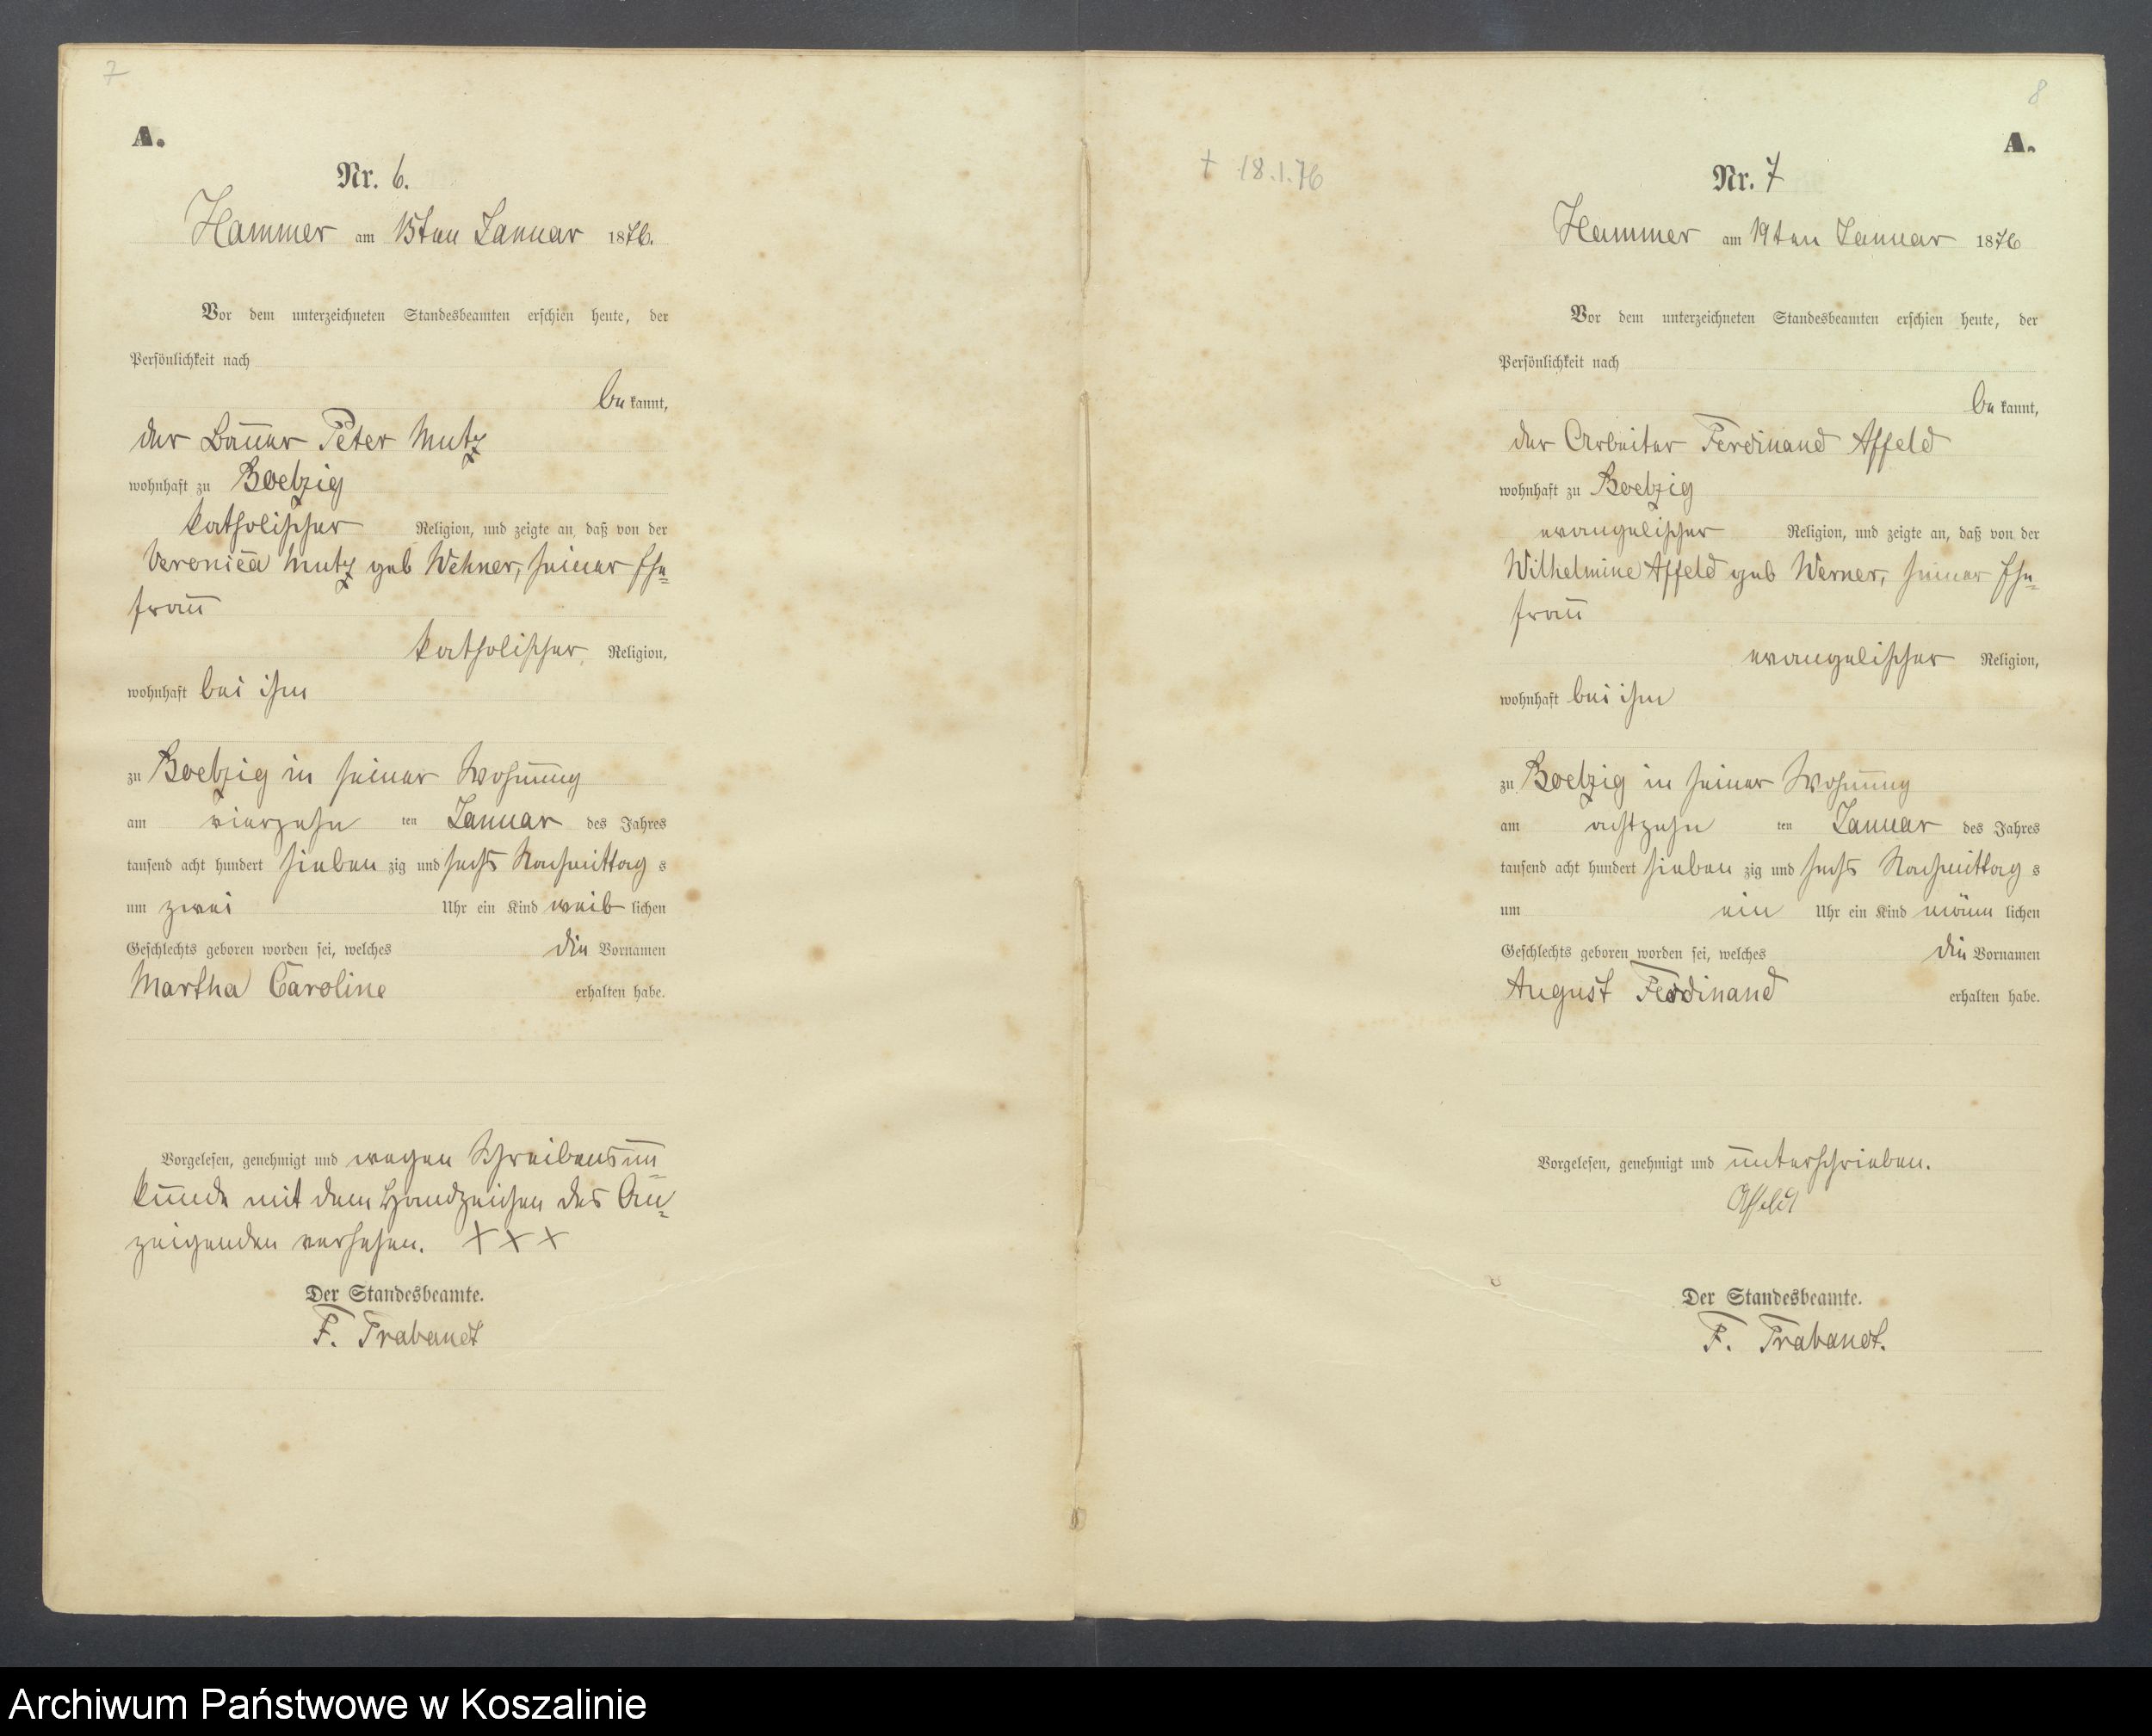 7
A.
Nr. 6.
Hammer am 15ten Januar 1876.
Vor dem unterzeichneten Standesbeamten erschien heute, der
Persönlichkeit nach
be kannt,
der Bauer Peter Mutz
wohnhaft zu Boetzig
katholischer Religion, und zeigte an, daß von der
Veronica Mutz geb Wehner, seiner Ehe=
frau
katholischer Religion,
wohnhaft bei ihm
zu Boetzig in seiner Wohnung
am vierzehn ten Januar des Jahres
tausend acht hundert sieben zig und sechs Nachmittag s
um zwei Uhr ein Kind weib lichen
Geschlechts geboren worden sei, welches die Vornamen
Martha Caroline erhalten habe.
Vorgelesen, genehmigt und wegen Schreibensun=
kunde mit dem Handzeichen des An=
zeigenden versehen. X X X
Der Standesbeamte.
F. Trabandt
8
A.
+ 18.1.76
Nr. 7
Hammer am 19ten Januar 1876
Vor dem unterzeichneten Standesbeamten erschien heute, der
Persönlichkeit nach
be kannt,
der Arbeiter Ferdinand Affeld
wohnhaft zu Boetzig
evangelischer Religion, und zeigte an, daß von der
Wilhelmine Affeld geb Werner, seiner Ehe=
frau
evangelischer Religion,
wohnhaft bei ihm
zu Boetzig in seiner Wohnung
am achtzehn ten Januar des Jahres
tausend acht hundert sieben zig und sechs Nachmittag s
um ein Uhr ein Kind männ lichen
Geschlechts geboren worden sei, welches die Vornamen
August Ferdinand erhalten habe.
Vorgelesen, genehmigt und unterschrieben.
Affeldt
Der Standesbeamte.
F. Trabandt.
Archiwum Państwowe w Koszalinie